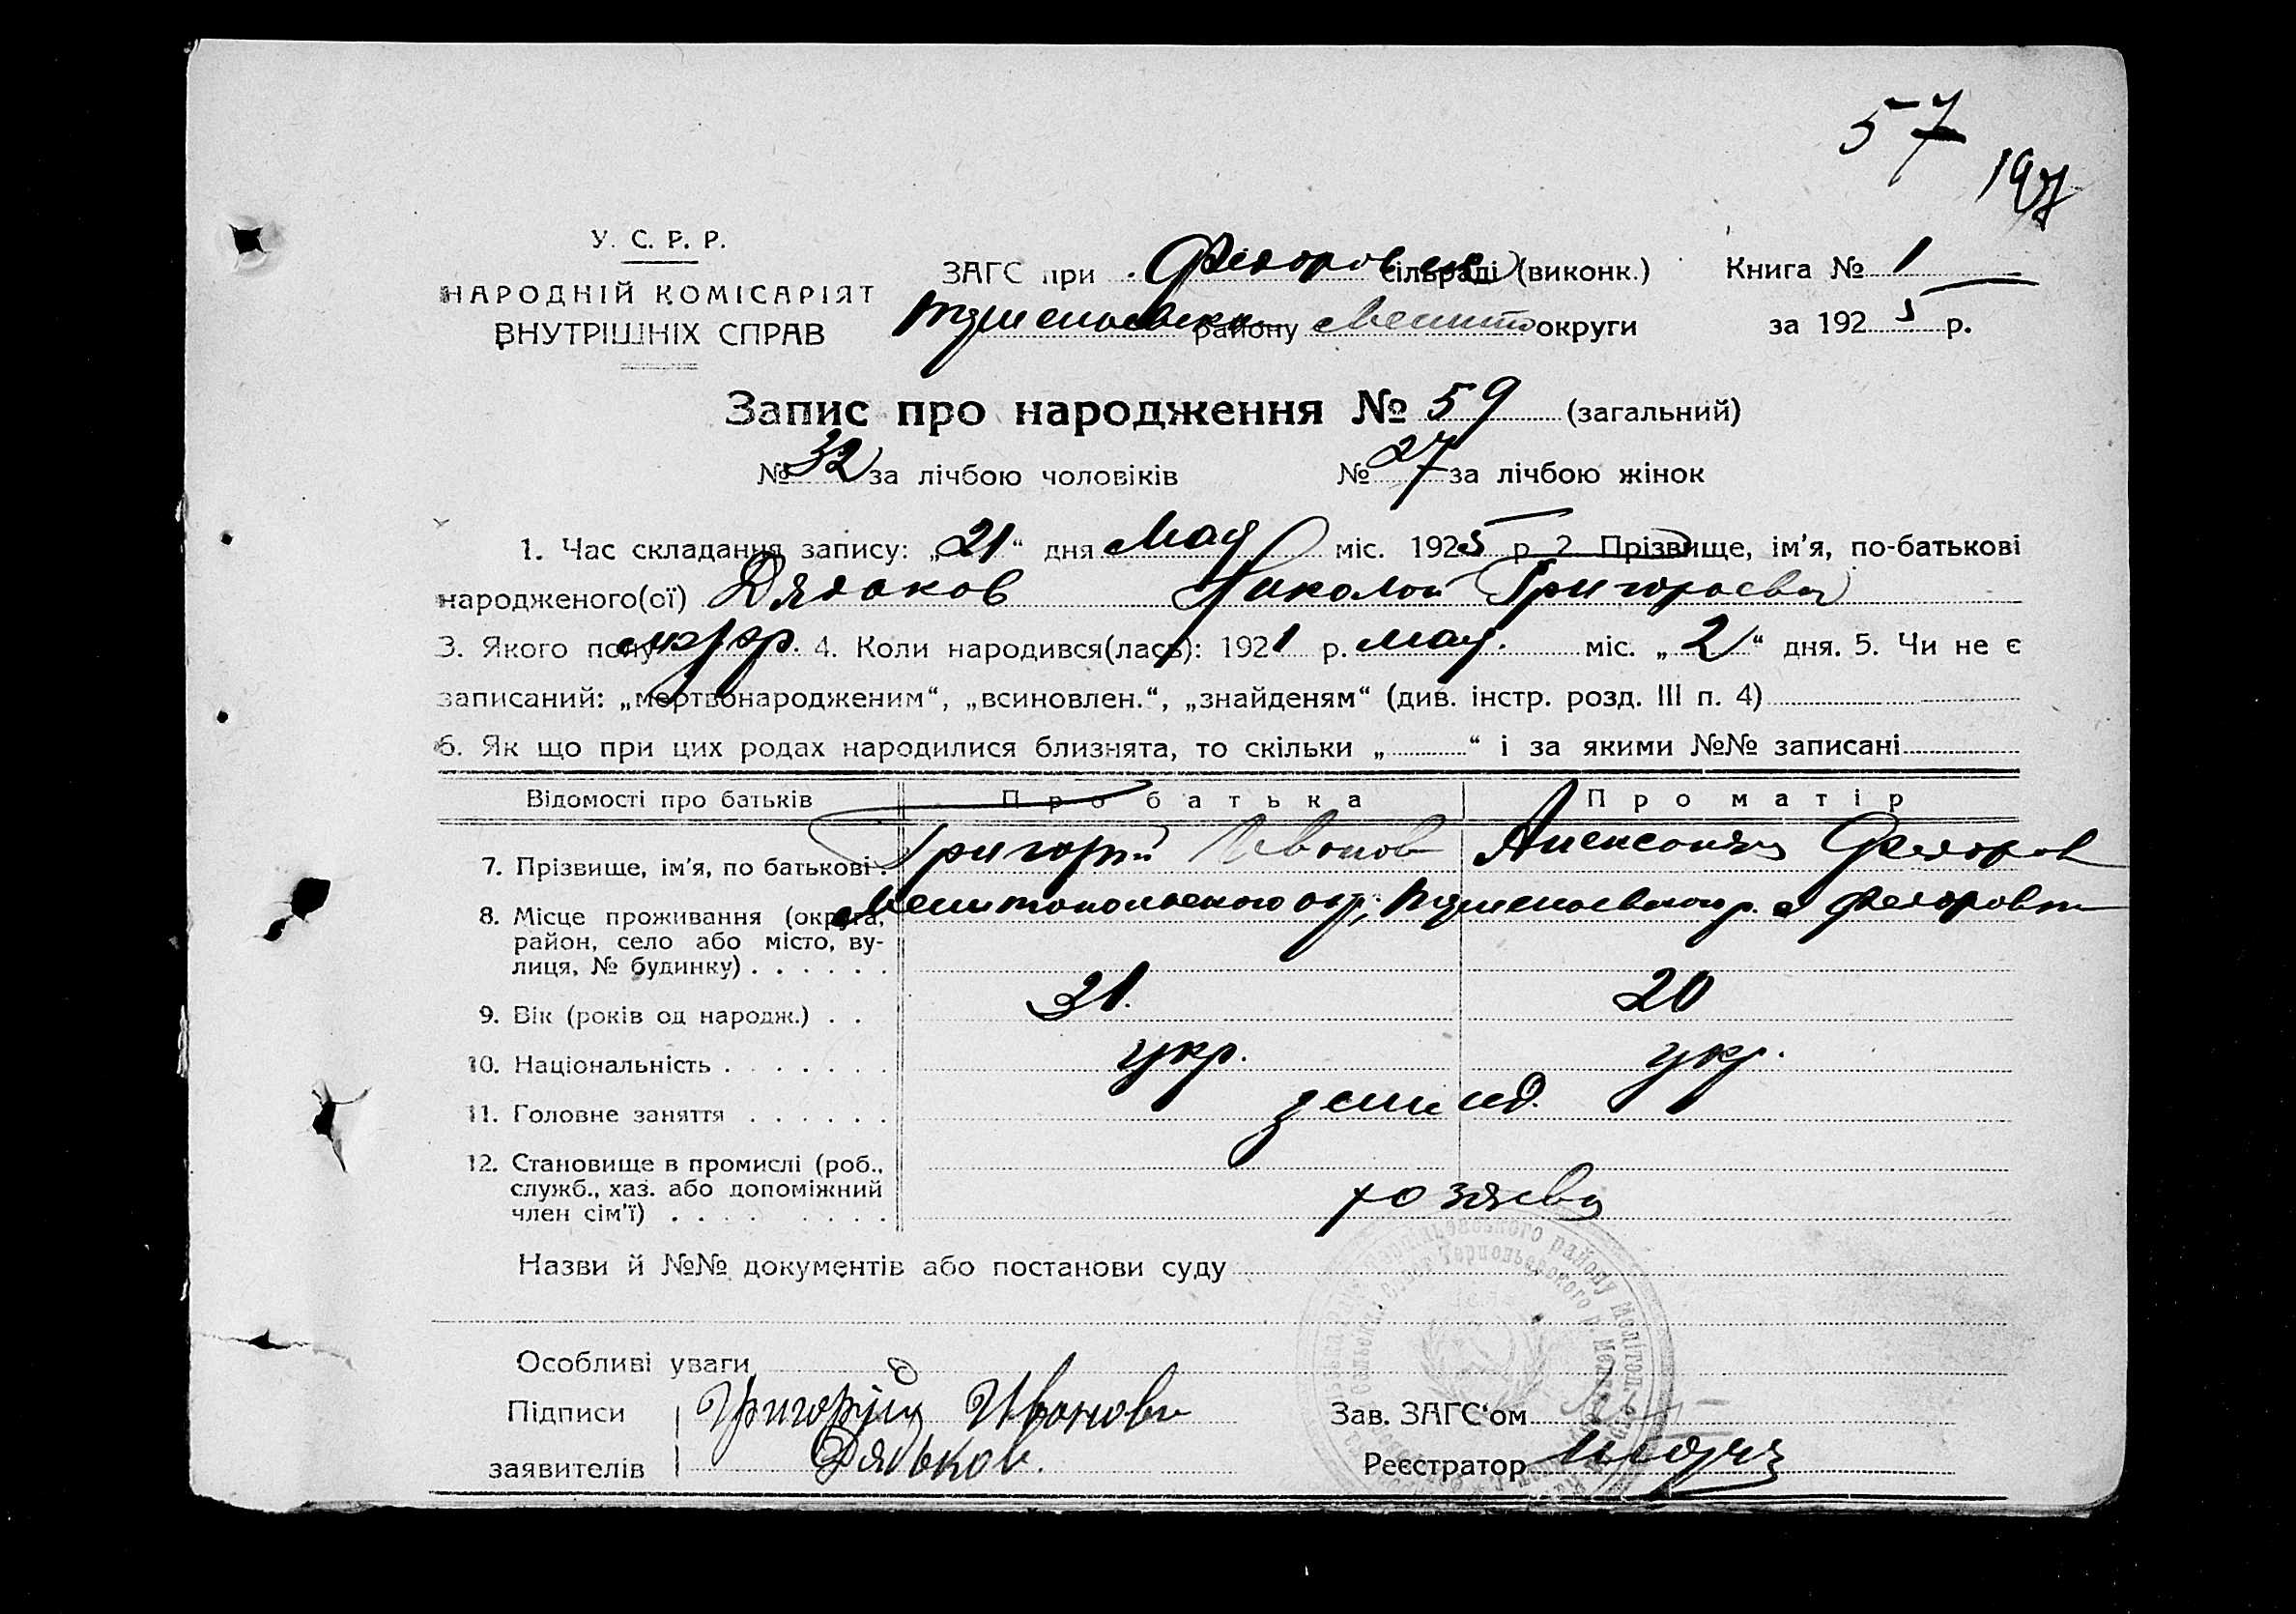 57
197
У. С. Р. Р.
НАРОДНІЙ КОМІСАРІЯТ
ВНУТРІШНІХ СПРАВ
ЗАГС при Федоровск сільраді (виконк.)
району Мелито округи
Книга № 1
за 1925 р.
Запис про народження № 59 (загальний)
№ 32 за лічбою чоловіків № 27 за лічбою жінок
1. Час складання запису: „21“ дня Мая міс. 1925 р. 2. Прізвище, ім’я, по-батькові
народженого(ої) Дядьков Николай Григорьевич
3. Якого полу 4. Коли народився(лась): 1921 р. мая. міс. „2“ дня. 5. Чи не є
записаний: „мертвонародженим“, „всиновлен.“, „знайденям“ (див. інстр. розд. III п. 4)
6. Як що при цих родах народилися близнята, то скільки „ “ і за якими №№ записані
Відомості про батьків Про батька Про матір
7. Прізвище, ім’я, по батькові. Григорий Иванов Александра Федоров
8. Місце проживання (округа, Мелитопольского окр. р. с Федоровка
район, село або місто, ву-
лиця, № будинку) . . . . . .
9. Вік (років од народж.) . . 31. 20
10. Національність . . . . . . . укр. укр.
11. Головне заняття . . . . . . землед.
12. Становище в промислі (роб.,
служб., хаз. або допоміжний хозяева
член сім’ї) . . . . . . . . .
Назви й №№ документів або постанови суду
Особливі уваги
Підписи Григорій Иванови
заявителів Дядьков.
Зав. ЗАГС‘ом
Реєстратор